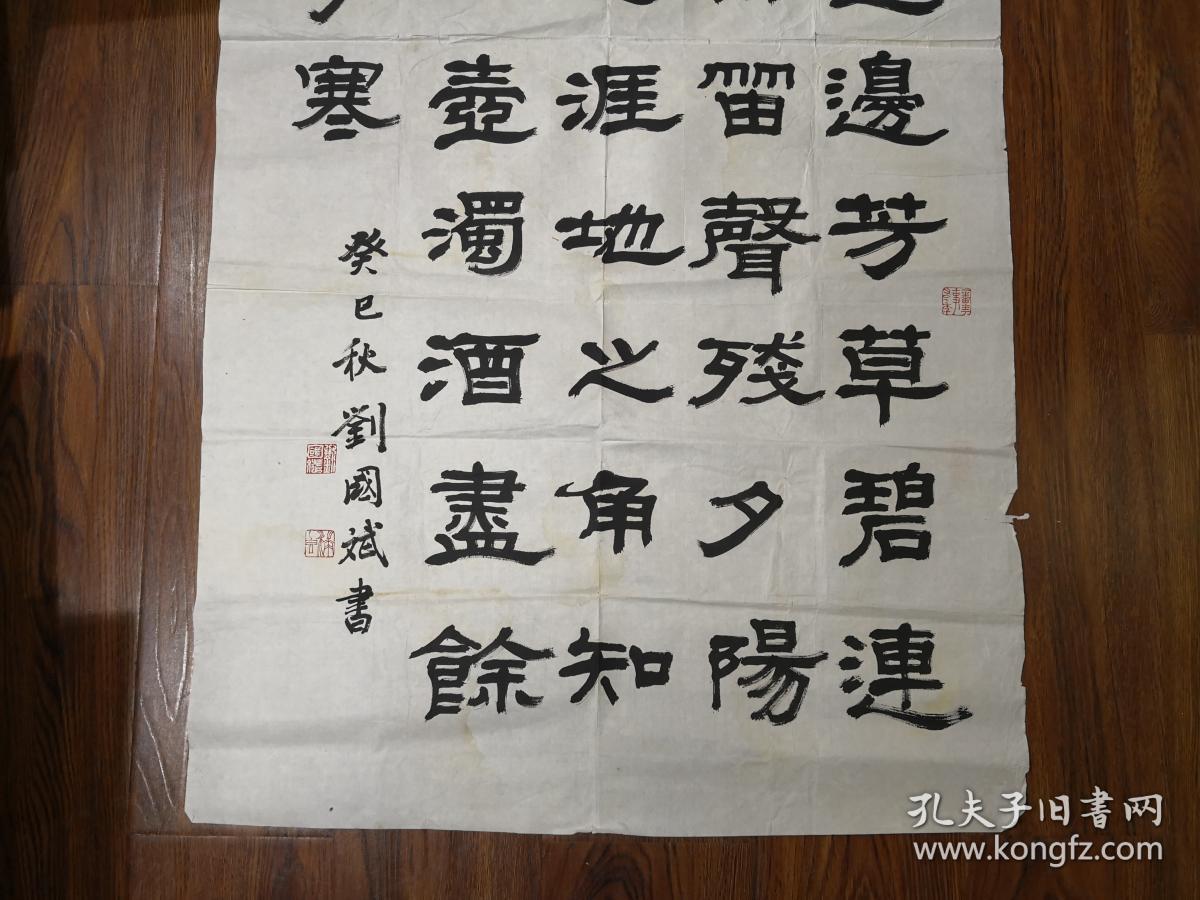 邊芳草碧連
笛聲殘夕陽
涯地之角知
壺濁酒盡餘
寒
癸巳秋劉國斌書
孔夫子旧書网
www.kongfz.com